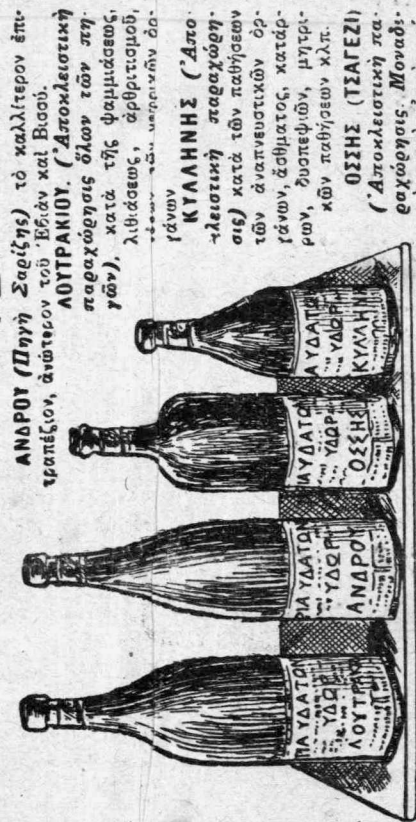 ΑΝΔΡΟΥ (Πηγὴ Σαρίζης) τὸ καλλίτερον ἐπι-
τραπέζιον, ἀνώτερον τοῦ Ἐβιὰν καὶ Βισσύ.
ΛΟΥΤΡΑΚΙΟΥ. (Ἀποκλειστικὴ
παραχώρησις ὅλων τῶν πη-
γῶν), κατὰ τῆς ψαμμιάσεως,
λιθιάσεως, ἀρθριτισμοῦ,
τῶν νεφρικῶν ὀρ-
γάνων
ΚΥΛΛΗΝΗΣ (Ἀπο-
κλειστικὴ παραχώρη-
σις) κατὰ τῶν παθήσεων
τῶν ἀναπνευστικῶν ὀρ-
γάνων, ἄσθματος, κατάρ-
ρων, δυσπεψιῶν, μητρι-
κῶν παθήσεων κλπ.
ΟΣΣΗΣ (ΤΣΑΓΕΖΙ)
(Ἀποκλειστικὴ πα-
ραχώρησις. Μοναδι-
ΙΑ ΥΔΑΤΩΝ
ΥΔΩΡ
ΛΟΥΤΡΑΚΙΟ
ΡΙΑ ΥΔΑΤΩΝ
ΥΔΩΡ
ΑΝΔΡΟΥ
ΙΑ ΥΔΑΤΩΝ
ΥΔΩΡ
ΟΣΣΗΣ
Α ΥΔΑΤΩ
ΥΔΩΡ
ΚΥΛΛΗΝΗ